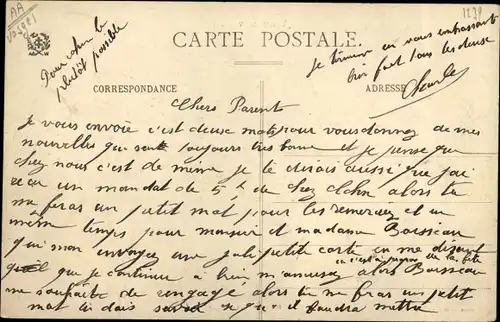 AA
Vosges
1238
CARTE POSTALE
CORRESPONDANCE
ADRESSE
Pour chez le
plutôt possible
je termine en vous embrassant
bien fort tous les deuse
Charles
Chers Parent
Je vous envoie c'est deuse mots pour vous donnez de mes
nouvelles qui sont toujours très bonne et je pense que
chez nous c'est de même je te dirais aussi que j'ai
recu un mandat de 5 f de chez clohn alors tu
me feras un petit mot pour les remerciez et en
même temps pour monsieur et madame Boisseau
qui mon envoyez une joli petite carte en me disant
en c'est à propos de la fête
que je continue à bien m'amusez alors Boisseau
me souhaite de rengagé alors tu me feras un petit
mot tu dois savoir se que il faudra mettre